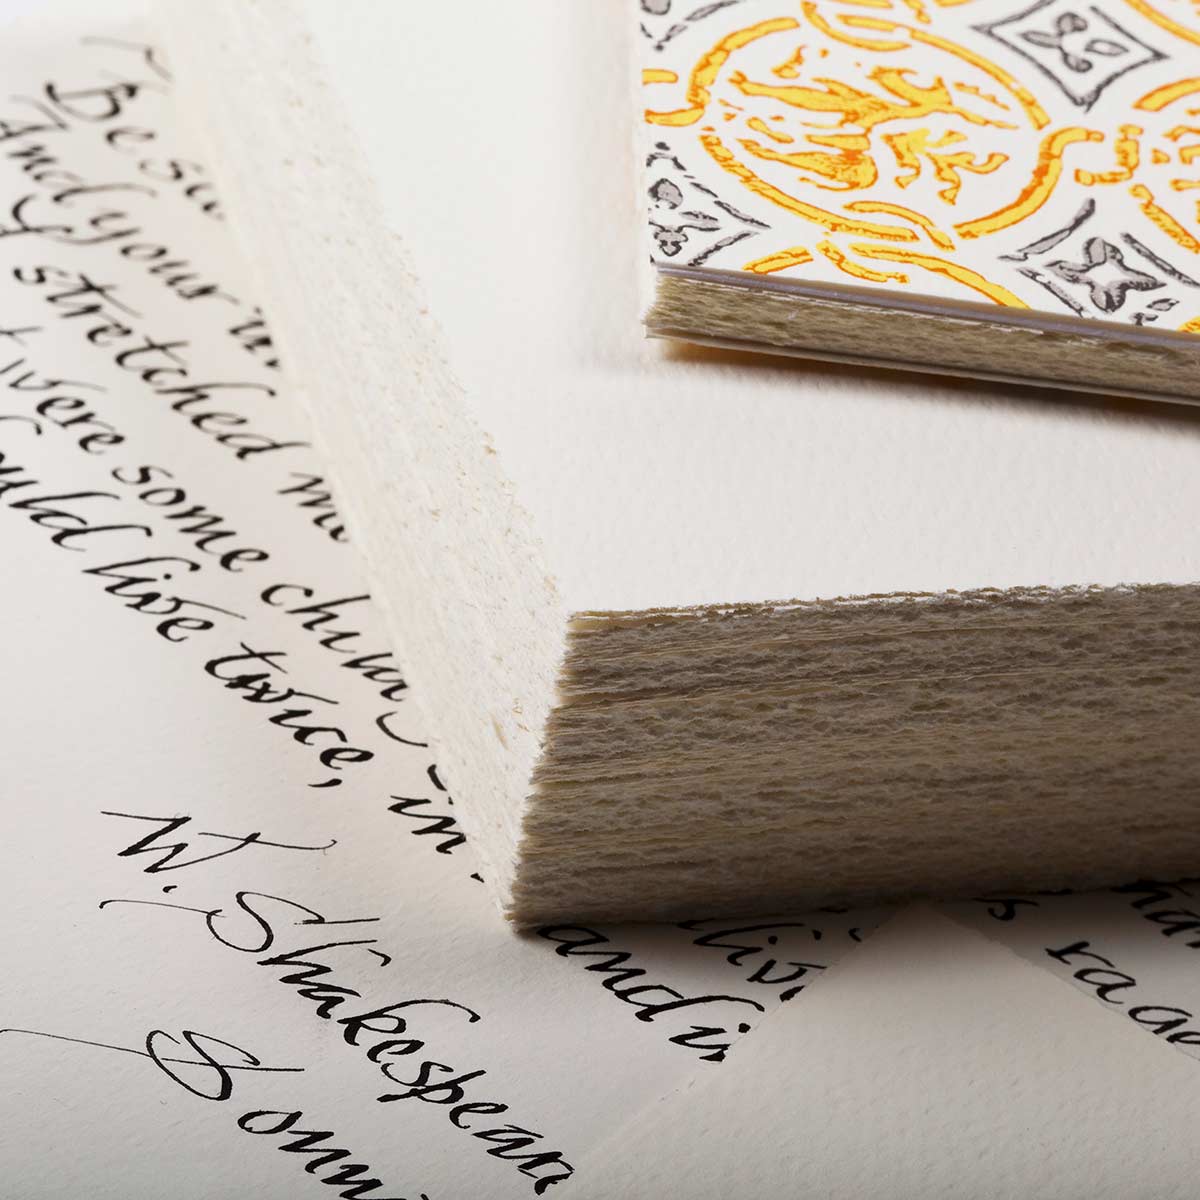 Be sc
And your
stretched me
t were some child
ould live twice, in and in
alive
s rag
W. Shakespear
Sonn